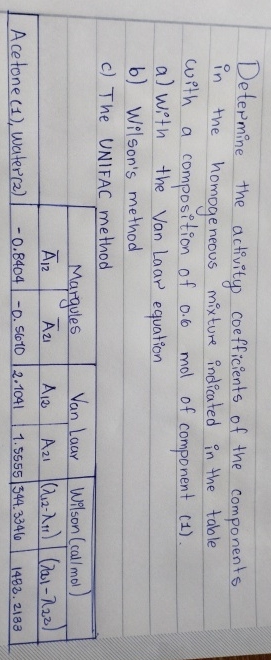 Determine the activity coefficients of the components
in the homogeneous mixture indicated in the table
with a composition of 0.6 mol of component (1).
a) With the Van Laar equation
b) Wilson's method
c) The UNIFAC method
Margules Van Laar Wilson (cal/mol)
A̅12 A̅21 A12 A21 (λ12-λ11) (λ21-λ22)
Acetone (1), Water(2) -0.8404 -0.5610 2.1041 1.5555 344.3346 1482.2133